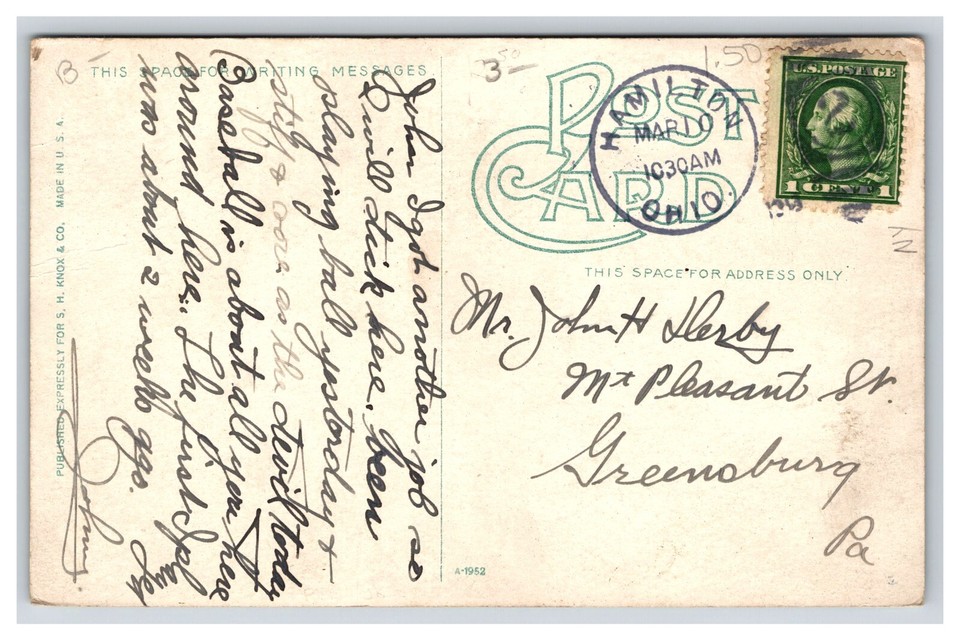 B-
THIS SPACE FOR WRITING MESSAGES.
John I got another job so
I will stick here. been
playing ball yesterday +
stiff + sore as the devil today
Baseball is about all you hear
around here. The first
was about 2 weeks ago.
Johny.
PUBLISHED EXPRESSLY FOR S. H. KNOX & CO. MADE IN U. S. A.
3.50
1.50
POST
CARD
HAMILTON
MAR 10
1030AM
OHIO
U.S. POSTAGE
1 CENT 1
THIS SPACE FOR ADDRESS ONLY
Mr. John H Derby
Mt Pleasant St.
Greensburg
Pa
A-1952